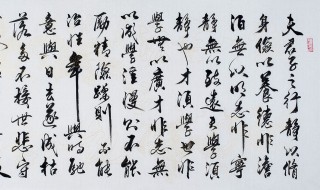 夫君子之行静以脩
身儉以養德非澹
泊無以明志非寧
静無以致遠夫學須
静也才須學也非
學無以廣才非志無
以成學淫慢則不能
勵精險躁則不能
治性年與時馳
意與日去遂成枯
落多不接世悲守